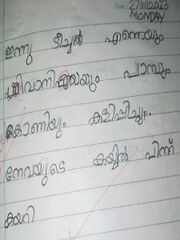 27/11/2023
MONDAY
ഇന്നു ടീച്ചർ എന്നെയും
പാമ്പും
കോണിയും കളിപ്പിച്ചു.
നേവയുടെ കയ്യിൽ പിന്ന്
കയറി